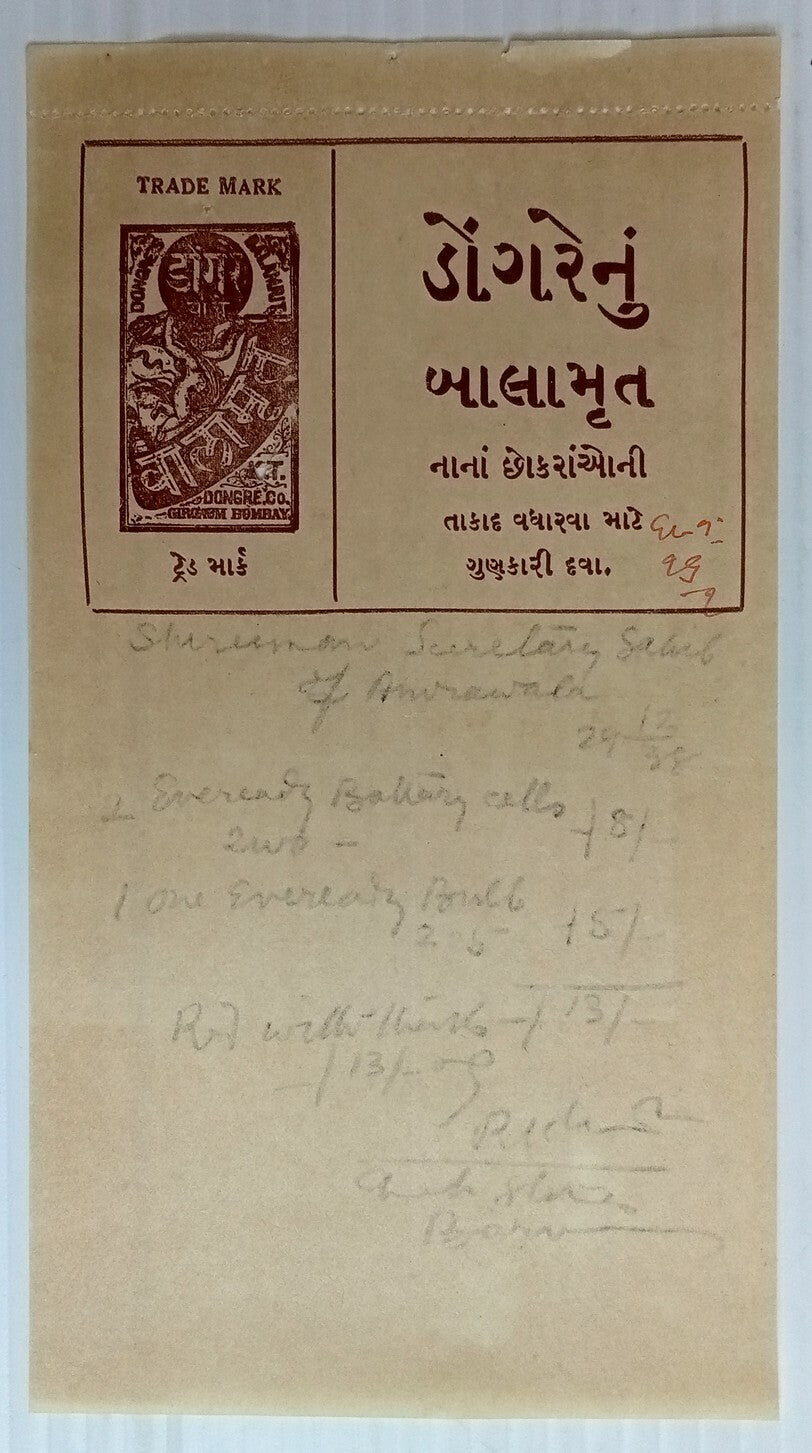 TRADE MARK
DONGRE
डोंगरे
बालामृत
DONGRE.CO.
GIRGAUM BOMBAY.
ટ્રેડ માર્ક
ડોંગરેનું
બાલામૃત
નાનાં છોકરાંઓની
તાકાદ વધારવા માટે
ગુણકારી દવા.
Shreeman Secretary Sahib
of
29 12
38
2 Eveready Battery cells -/8/-
Two -
1 one Eveready Bulb -/5/-
2.5
Red with thanks -/13/-
-/13/-